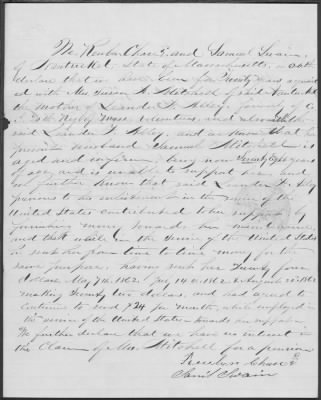 We Reuben Chase 2d and Samuel Swain
of Nantucket, State of Massachusetts, on oath
declare that we have been for Twenty years acquaint
ed with Mrs Susan A. Mitchell of said Nantucket
the mother of Leander F. Alley, formerly of Co
I. 19th Regt Mass Volunteers, and also with
said Leander F. Alley, and we know that her
present husband Samuel Mitchell is
aged and infirm, being now Seventy Eight years
of age, and is unable to support her, and
we further know that said Leander F. Alley
previous to his enlistment in the service of the
United States contributed to her support by
furnishing money towards her maintenance,
and that while in the Service of the United States
he sent her from time to time money for the
same purpose, having sent her Twenty four
dollars May 7th 1862. July 14th 1862 & August 1862
making Seventy two dollars, and had agreed to
continue to send $24 per month, while employed in
the service of the United States towards her support.
We further declare that we have no interest in
the Claim of Mrs. Mitchell for a pension
Reuben Chase 2d
Saml Swain